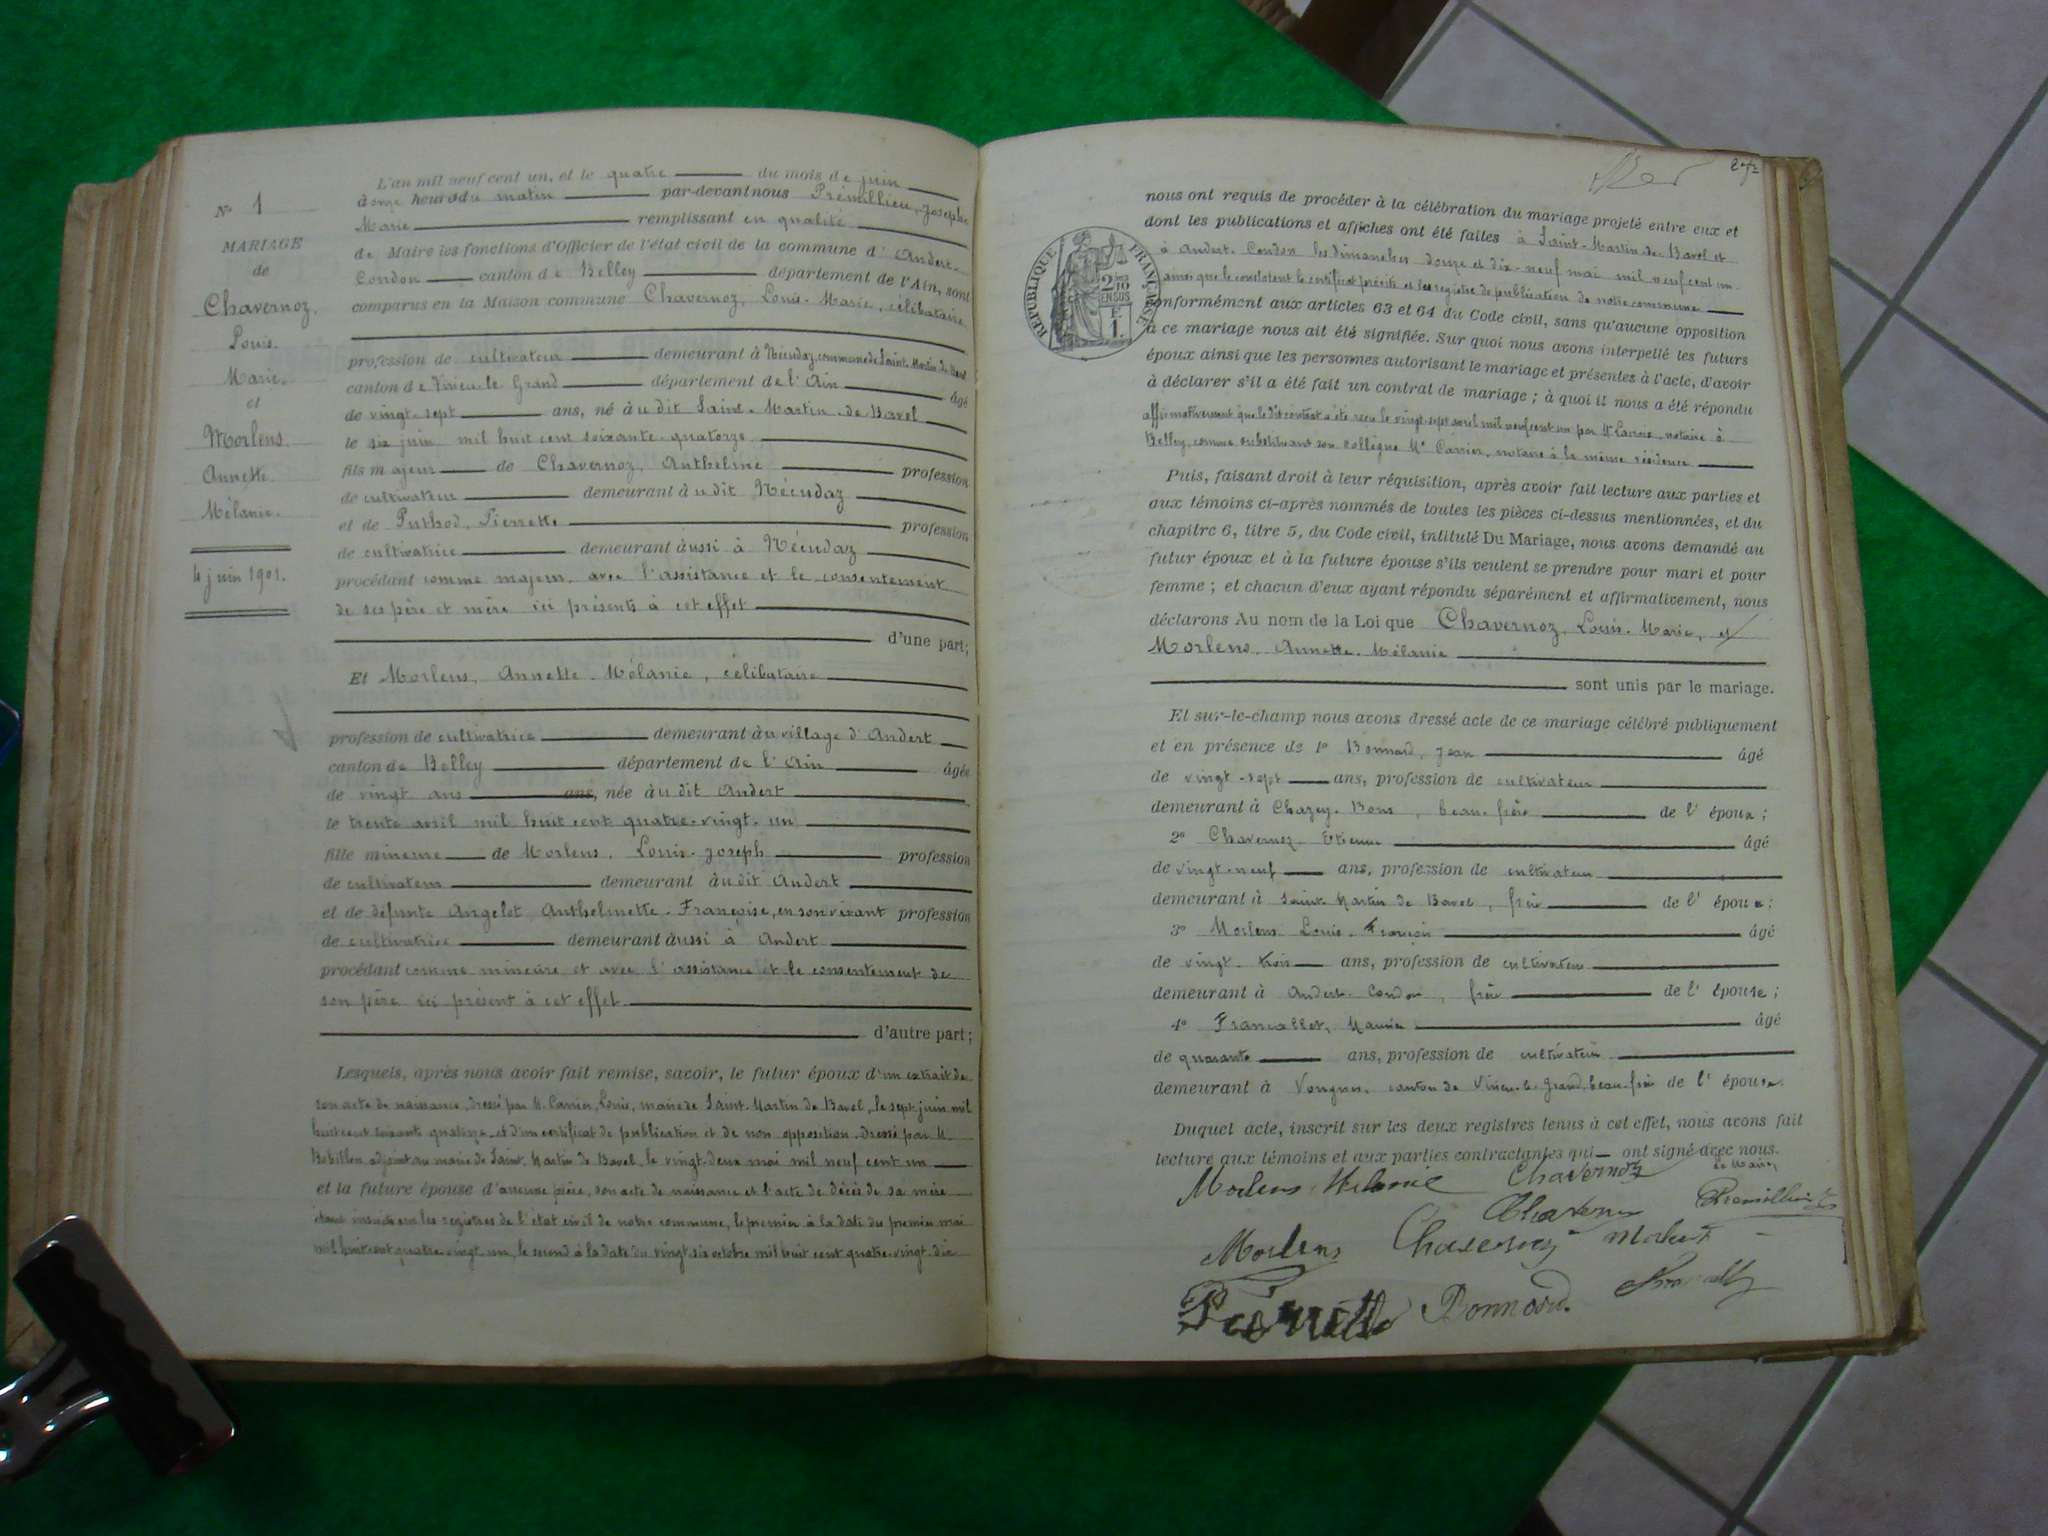 N° 1
MARIAGE
de
Chavernoz,
Louis.
Marie.
et
Morlens.
Annette.
Mélanie.
4 juin 1901.
L'an mil neuf cent un, et le quatre du mois de juin
à onze heures du matin par-devant nous Prémillieu, Joseph
Marie remplissant en qualité
de Maire les fonctions d'Officier de l'état civil de la commune d'Andert-
Condon canton de Belley département de l'Ain, sont
comparus en la Maison commune Chavernoz, Louis-Marie, célibataire
profession de cultivateur demeurant à commune de Saint-Martin-de-Bavel
canton de Virieu-le-Grand département de l'Ain âgé
de vingt-sept ans, né àudit Saint-Martin-de-Bavel
le six juin mil huit cent soixante-quatorze
fils majeur de Chavernoz, Anthelme profession
de cultivateur demeurant àudit
et de Puthod, Pierrette profession
de cultivatrice demeurant àussi à
procédant comme majeur avec l'assistance et le consentement
de ses père et mère ici présents à cet effet
d'une part;
Et Morlens, Annette-Mélanie, célibataire
profession de cultivatrice demeurant àu village d'Andert
canton de Belley département de l'Ain âgée
de vingt ans ans, née àudit Andert
le trente avril mil huit cent quatre-vingt-un
fille mineure de Morlens, Louis-Joseph profession
de cultivateur demeurant àudit Andert
et de défunte Angelot, Anthelmette-Françoise, en son vivant profession
de cultivatrice demeurant àussi à Andert
procédant comme mineure et avec l'assistance et le consentement de
son père ici présent à cet effet
d'autre part;
Lesquels, après nous avoir fait remise, savoir, le futur époux d'un extrait de
son acte de naissance dressé par M. Carrier, Louis, maire de Saint-Martin-de-Bavel, le sept juin mil
huit cent soixante quatorze et d'un certificat de publication et de non opposition dressé par M.
adjoint au maire de Saint-Martin-de-Bavel le vingt-deux mai mil neuf cent un
et la future épouse d'aucune pièce, son acte de naissance et l'acte de décès de sa mère
étant inscrits sur les registres de l'état civil de notre commune, le premier à la date du premier mai
mil huit cent quatre-vingt-un, le second à la date du vingt-six octobre mil huit cent quatre-vingt-dix
nous ont requis de procéder à la célébration du mariage projeté entre eux et
dont les publications et affiches ont été faites à Saint-Martin-de-Bavel et
à Andert-Condon les dimanches douze et dix-neuf mai mil neuf cent un
ainsi que le constatent le certificat précité et les registre de publication de notre commune
conformément aux articles 63 et 64 du Code civil, sans qu'aucune opposition
à ce mariage nous ait été signifiée. Sur quoi nous avons interpellé les futurs
époux ainsi que les personnes autorisant le mariage et présentes à l'acte, d'avoir
à déclarer s'il a été fait un contrat de mariage; à quoi il nous a été répondu
affirmativement que le dit contrat a été reçu le vingt-sept avril mil neuf cent un par Me notaire à
Belley, comme substituant son collègue Me Carrier, notaire à la même résidence
Puis, faisant droit à leur réquisition, après avoir fait lecture aux parties et
aux témoins ci-après nommés de toutes les pièces ci-dessus mentionnées, et du
chapitre 6, titre 5, du Code civil, intitulé Du Mariage, nous avons demandé au
futur époux et à la future épouse s'ils veulent se prendre pour mari et pour
femme; et chacun d'eux ayant répondu séparément et affirmativement, nous
déclarons Au nom de la Loi que Chavernoz, Louis-Marie, et
Morlens, Annette-Mélanie
sont unis par le mariage.
Et sur-le-champ nous avons dressé acte de ce mariage célébré publiquement
et en présence de 1° Bonnard, Jean âgé
de vingt-sept ans, profession de cultivateur
demeurant à Chazey-Bons, beau-frère de l'époux;
2° Chavernoz, Etienne âgé
de vingt-neuf ans, profession de cultivateur
demeurant à Saint-Martin-de-Bavel, frère de l'époux;
3° Morlens Louis-François âgé
de vingt-trois ans, profession de cultivateur
demeurant à Andert-Condon, frère de l'épouse;
4° Francallet, âgé
de quarante ans, profession de cultivateur
demeurant à Vongnes, canton de Virieu-le-Grand, beau-frère de l'épouse.
Duquel acte, inscrit sur les deux registres tenus à cet effet, nous avons fait
lecture aux témoins et aux parties contractantes qui ont signé avec nous.
Le Maire,
Morlens Mélanie Chavernoz
Chavernoz Prémillieu
Morlens Chavernoz
Bonnard.
RÉPUBLIQUE FRANÇAISE
2 10
EN SUS
F.
1.